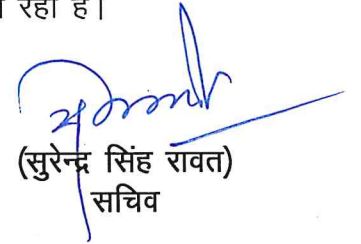 रहा है।
(सुरेन्द्र सिंह रावत)
सचिव